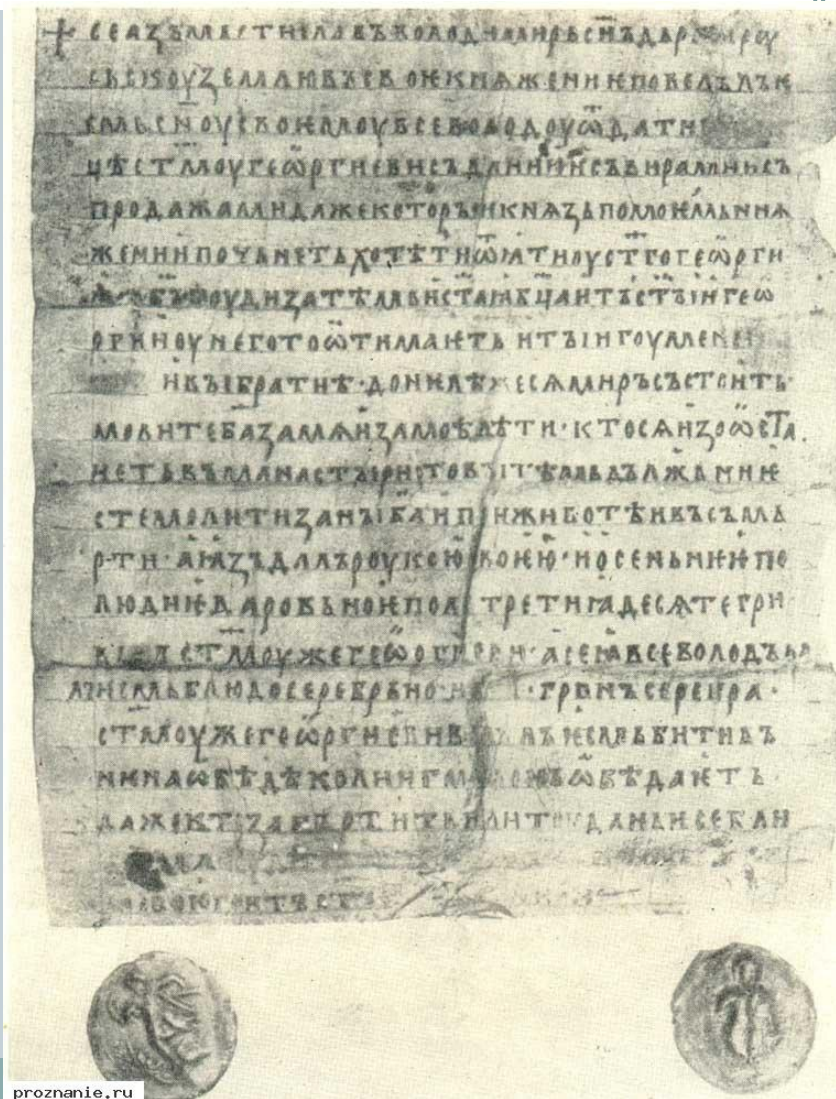 + СЕ АЗЪ МЬСТИСЛАВЪ ВОЛОДИМИРЬ СН҃Ъ ДЬРЖА РОУ
СЬСКОУ ЗЕМЛЮ ВЪ СВОѤ КНѦЖЕНИѤ ПОВЕЛѢЛЪ Ѥ
СМЬ СН҃ОУ СВОѤМОУ ВСЕВОЛОДОУ ѾДАТИ
ЦѢ СТ҃МОУ ГЕѠРГИЕВИ СЪ ДАНИЮ И СЪ ВИРАМИ И СЪ
ПРОДАЖАМИ ДАЖЕ КОТОРЫИ КНѦЗЬ ПО МОѤМЬ КНѦ
ЖЕНИИ ПОЧЬНЕТЬ ХОТѢТИ ѾѦТИ ОУ СТ҃ГО ГЕѠРГИ
Ѧ А БЪ҃ БОУДИ ЗА ТѢМЬ И СТ҃АѦ БЦ҃А И ТЪ СТ҃ЫИ ГЕѠ
РГИИ ОУ НЕГО ТО ѾИМАѤТЬ И ТЫ ИГОУМЕНЕ
И ВЫ БРАТИѢ · ДОНЕЛѢЖЕ СѦ МИРЪ СЪСТОИТЬ ·
МОЛИТЕ БА҃ ЗА МѦ И ЗА МОѢ ДѢТИ · КТО СѦ ИЗОѠСТА
НЕТЬ ВЪ МАНАСТЫРИ ТО ВЫ ТѢМЬ ДЪЛЖЬНИ Ѥ
СТЕ МОЛИТИ ЗА НЫ БА҃ И ПРИ ЖИВОТѢ И ВЪ СЪМЬ
РТИ · А ѨЗЪ ДАЛЪ РОУКОЮ СВОѤЮ · И ОСЕНЬНѤѤ ПО
ЛЮДИѤ ДАРОВЬНОѤ ПОЛЪТРЕТИꙖДЕСѦТЕ ГРИ
ВЬНЪ СТ҃МОУ ЖЕ ГЕѠРГИЕВИ · А СЕ Ꙗ ВСЕВОЛОДЪ ДА
ЛЪ ѤСМЬ БЛЮДО СЕРЕБРЬНО · ГРВ҃НЪ СЕРЕБРА ·
СТ҃МОУ ЖЕ ГЕѠРГИЕВИ ВЕЛѢЛЪ ѤСМЬ БИТИ ВЪ
НѤ НА ѠБѢДѢ КОЛИ ИГОУМЕНЪ ѠБѢДАѤТЬ ·
ДАЖЕ КТО ЗАПЪРТИТЬ ИЛИ ТОУ ДАНЬ И СЕ БЛЮ
proznanie.ru